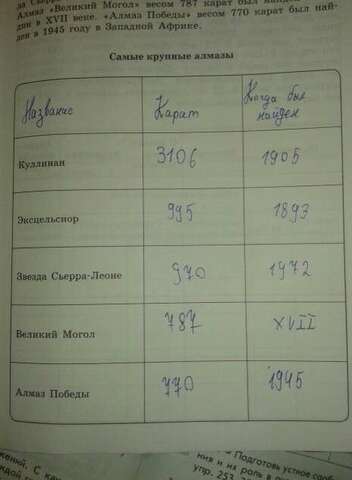 да Сьерра
Алмаз «Великий Могол» весом 787 карат был
ден в XVII веке. «Алмаз Победы» весом 770 карат был най-
ден в 1945 году в Западной Африке.
Самые крупные алмазы
Название Карат Когда был найден
Куллинан 3106 1905
Эксцельсиор 995 1893
Звезда Сьерра-Леоне 970 1972
Великий Могол 787 XVII
Алмаз Победы 770 1945
Подготовь устное
ния и их роль в
упр. 253,
жений. С